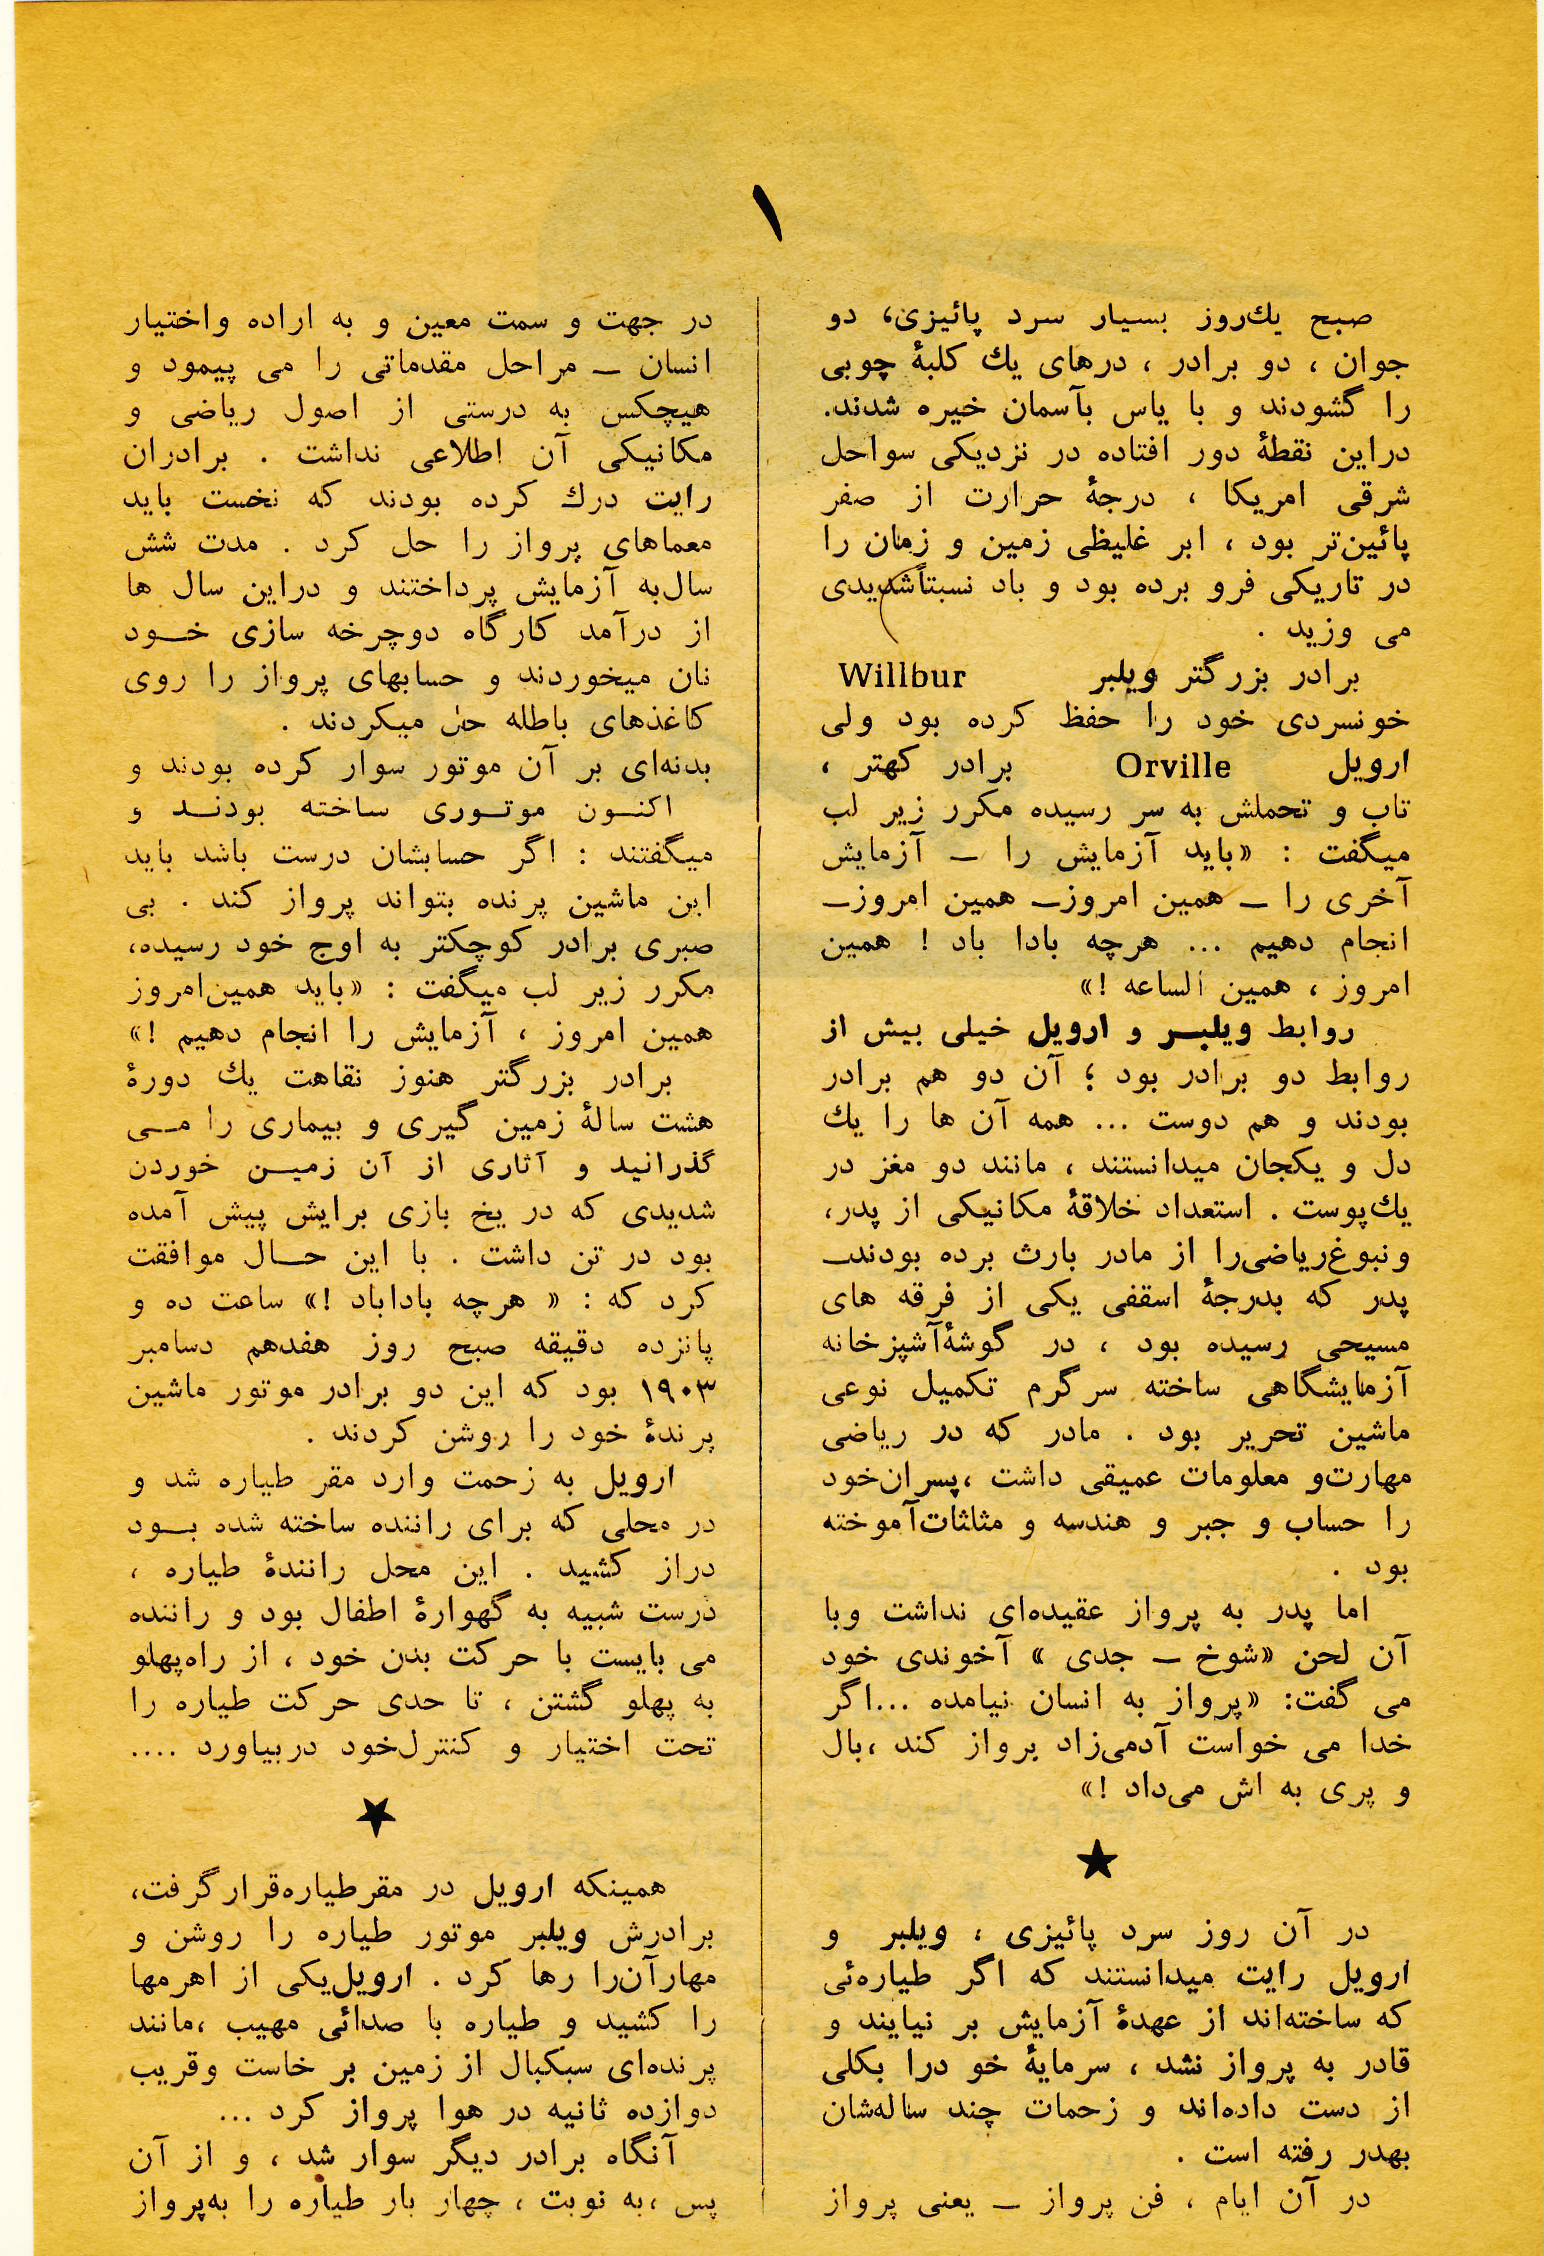 ۱
صبح یك‌روز بسیار سرد پائیزی، دو
جوان ، دو برادر ، درهای یك کلبهٔ چوبی
را گشودند و با یاس بآسمان خیره شدند.
دراین نقطهٔ دور افتاده در نزدیکی سواحل
شرقی امریکا ، درجهٔ حرارت از صفر
پائین‌تر بود ، ابر غلیظی زمین و زمان را
در تاریکی فرو برده بود و باد نسبتاًشدیدی
می وزید .
برادر بزرگتر ویلبر Willbur
خونسردی خود را حفظ کرده بود ولی
ارویل Orville برادر کهتر ،
تاب و تحملش به سر رسیده مکرر زیر لب
میگفت : «باید آزمایش را – آزمایش
آخری را – همین امروز– همین امروز–
انجام دهیم ... هرچه بادا باد ! همین
امروز ، همین الساعه !»
روابط ویلبـر و ارویل خیلی بیش از
روابط دو برادر بود ؛ آن دو هم برادر
بودند و هم دوست ... همه آن ها را یك
دل و یکجان میدانستند ، مانند دو مغز در
یك‌پوست . استعداد خلاقهٔ مکانیکی از پدر،
ونبوغ‌ریاضی‌را از مادر بارث برده بودند–
پدر که بدرجهٔ اسقفی یکی از فرقه های
مسیحی رسیده بود ، در گوشهٔ‌آشپزخانه
آزمایشگاهی ساخته سرگرم تکمیل نوعی
ماشین تحریر بود . مادر که در ریاضی
مهارت‌و معلومات عمیقی داشت ،پسران‌خود
را حساب و جبر و هندسه و مثلثات‌آموخته
بود .
اما پدر به پرواز عقیده‌ای نداشت وبا
آن لحن «شوخ – جدی » آخوندی خود
می گفت: «پرواز به انسان نیامده ...اگر
خدا می خواست آدمی‌زاد پرواز کند ،بال
و پری به اش می‌داد !»
★
در آن روز سرد پائیزی ، ویلبر و
ارویل رایت میدانستند که اگر طیاره‌ئی
که ساخته‌اند از عهدهٔ آزمایش بر نیایند و
قادر به پرواز نشد ، سرمایهٔ خو درا بکلی
از دست داده‌اند و زحمات چند ساله‌شان
بهدر رفته است .
در آن ایام ، فن پرواز – یعنی پرواز
در جهت و سمت معین و به اراده واختیار
انسان – مراحل مقدماتی را می پیمود و
هیچکس به درستی از اصول ریاضی و
مکانیکی آن اطلاعی نداشت . برادران
رایت درك کرده بودند که نخست باید
معماهای پرواز را حل کرد . مدت شش
سال‌به آزمایش پرداختند و دراین سال ها
از درآمد کارگاه دوچرخه سازی خـود
نان میخوردند و حسابهای پرواز را روی
کاغذهای باطله حل میکردند .
بدنه‌ای بر آن موتور سوار کرده بودند و
اکنـون موتـوری ساخته بودنـد و
میگفتند : اگر حسابشان درست باشد باید
این ماشین پرنده بتواند پرواز کند . بی
صبری برادر کوچکتر به اوج خود رسیده،
مکرر زیر لب میگفت : «باید همین‌امروز
همین امروز ، آزمایش را انجام دهیم !»
برادر بزرگتر هنوز نقاهت یك دورهٔ
هشت سالهٔ زمین گیری و بیماری را مـی
گذرانید و آثاری از آن زمیـن خوردن
شدیدی که در یخ بازی برایش پیش آمده
بود در تن داشت . با این حـال موافقت
کرد که : « هرچه باداباد !» ساعت ده و
پانزده دقیقه صبح روز هفدهم دسامبر
۱۹۰۳ بود که این دو برادر موتور ماشین
پرندهٔ خود را روشن کردند .
ارویل به زحمت وارد مقر طیاره شد و
در محلی که برای راننده ساخته شده بـود
دراز کشید . این محل رانندهٔ طیاره ،
درست شبیه به گهوارهٔ اطفال بود و راننده
می بایست با حرکت بدن خود ، از راه‌پهلو
به پهلو گشتن ، تا حدی حرکت طیاره را
تحت اختیار و کنترل‌خود دربیاورد ....
★
همینکه ارویل در مقرطیاره‌قرارگرفت،
برادرش ویلبر موتور طیاره را روشن و
مهارآن‌را رها کرد . ارویل‌یکی از اهرمها
را کشید و طیاره با صدائی مهیب ،مانند
پرنده‌ای سبکبال از زمین بر خاست وقریب
دوازده ثانیه در هوا پرواز کرد ...
آنگاه برادر دیگر سوار شد ، و از آن
پس ،به نوبت ، چهار بار طیاره را به‌پرواز